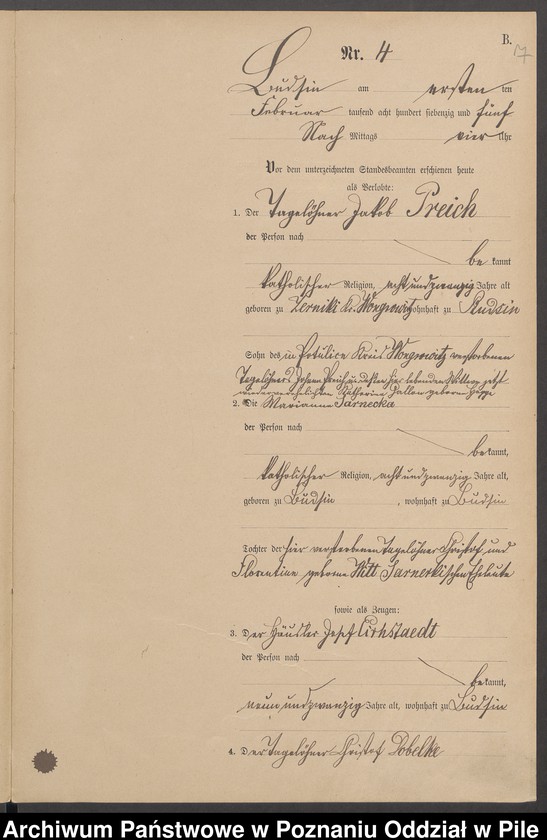 B.
17
Nr. 4
Budsin am ersten ten
Februar tausend acht hundert siebenzig und fünf
Nach Mittags vier Uhr
Vor dem unterzeichneten Standesbeamten erschienen heute
als Verlobte:
1. Der Tagelöhner Jakob Preich
der Person nach
be kannt
katholischer Religion, acht und zwanzig Jahre alt
geboren zu Zerniki Kr. Wongrowitz wohnhaft zu Budsin
Sohn des in Potulice Kreis Wongrowitz verstorbenen
Tagelöhners Johann Preich und dessen hier lebenden Wittwe jetzt
wiederverehelichten Katharina geborene
2. Die Marianna Sarnecka
der Person nach
bekannt,
katholischer Religion, acht und zwanzig Jahre alt,
geboren zu Budsin , wohnhaft zu Budsin
Tochter der hier verstorbenen Tagelöhner Christof und
Florentine geborne Witt Sarnecki'schen Eheleute
sowie als Zeugen:
3. Der Häusler Josef Kirhstaedt
der Person nach
bekannt,
neun und zwanzig Jahre alt, wohnhaft zu Budsin
4. Der Tagelöhner Christof Dobelke
Archiwum Państwowe w Poznaniu Oddział w Pile